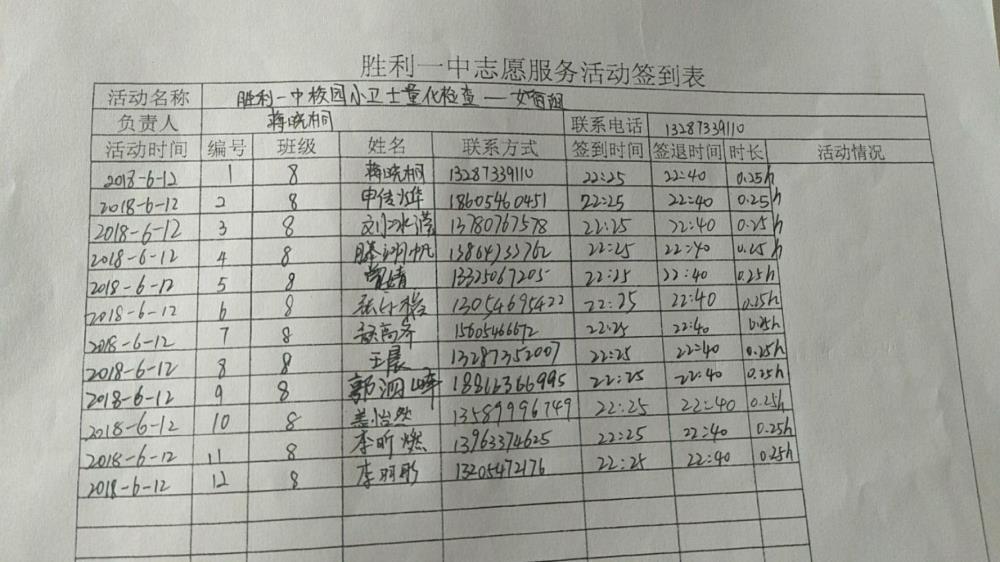 胜利一中志愿服务活动签到表
活动名称 胜利一中校园小卫士量化检查—女宿组
负责人 蒋晓桐 联系电话 13287339110
活动时间 编号 班级 姓名 联系方式 签到时间 签退时间 时长 活动情况
2018-6-12 1 8 蒋晓桐 13287339110 22:25 22:40 0.25h
2018-6-12 2 8 18605460451 22:25 22:40 0.25h
2018-6-12 3 8 13780767578 22:25 22:40 0.25h
2018-6-12 4 8 22:25 22:40 0.25h
2018-6-12 5 8 13325067205 22:25 22:40 0.25h
2018-6-12 6 8 13054695422 22:25 22:40 0.25h
2018-6-12 7 8 15605466672 22:25 22:40 0.25h
2018-6-12 8 8 王晨 13287352007 22:25 22:40 0.25h
2018-6-12 9 8 22:25 22:40 0.25h
2018-6-12 10 8 盖怡然 13589996749 22:25 22:40 0.25h
2018-6-12 11 8 李昕燃 13963374625 22:25 22:40 0.25h
2018-6-12 12 8 13205472176 22:25 22:40 0.25h